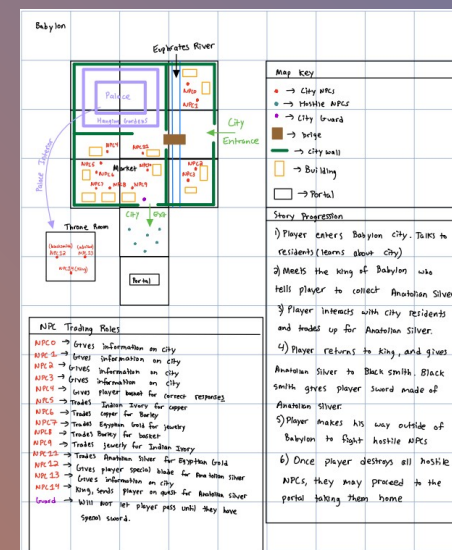 Babylon
Euphrates River
Palace
Hanging Gardens
NPC0
NPC1
City
Entrance
Palace Interior
NPC4
NPC11
Market
NPC5
NPC6
NPC7
NPC8
NPC9
NPC2
NPC3
City Exit
Throne Room
NPC12
NPC13
NPC14(King)
Portal
Map Key
→ City NPCs
→ Hostile NPCs
→ City Guard
→ Brige
→ City wall
→ Building
→ Portal
Story Progression
1) Player enters Babylon city. Talks to
residents (learns about city)
2) Meets the king of Babylon who
tells player to collect Anatolian Silver
3) Player interacts with city residents
and trades up for Anatolian Silver.
4) Player returns to king, and gives
Anatolian Silver to Black smith. Black
smith gives player sword made of
Anatolian silver.
5) Player makes his way outside of
Babylon to fight hostile NPCs
6) Once player destroys all hostile
NPCs, they may proceed to the
portal taking them home
NPC Trading Roles
NPC0 → Gives information on city
NPC1 → Gives information on city
NPC2 → Gives information on city
NPC3 → Gives information on city
NPC4 → Gives player basket for correct responses
NPC5 → Trades Indian Ivory for copper
NPC6 → Trades copper for Barley
NPC7 → Trades Egyptian Gold for jewelry
NPC8 → Trades Barley for basket
NPC9 → Trades jewerly for Indian Ivory
→ Trades Anatolian Silver for Egyptian Gold
NPC12 → Gives player special blade for Anatolian silver
NPC13 → Gives information on city
NPC14 → King, sends player on quest for Anatolian Silver
Guard → Will not let player pass until they have
special sword.